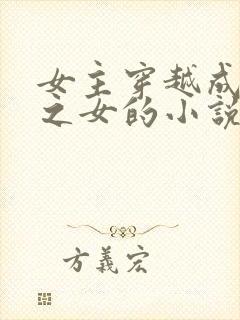 女主穿越成
之女的小说
方義宏